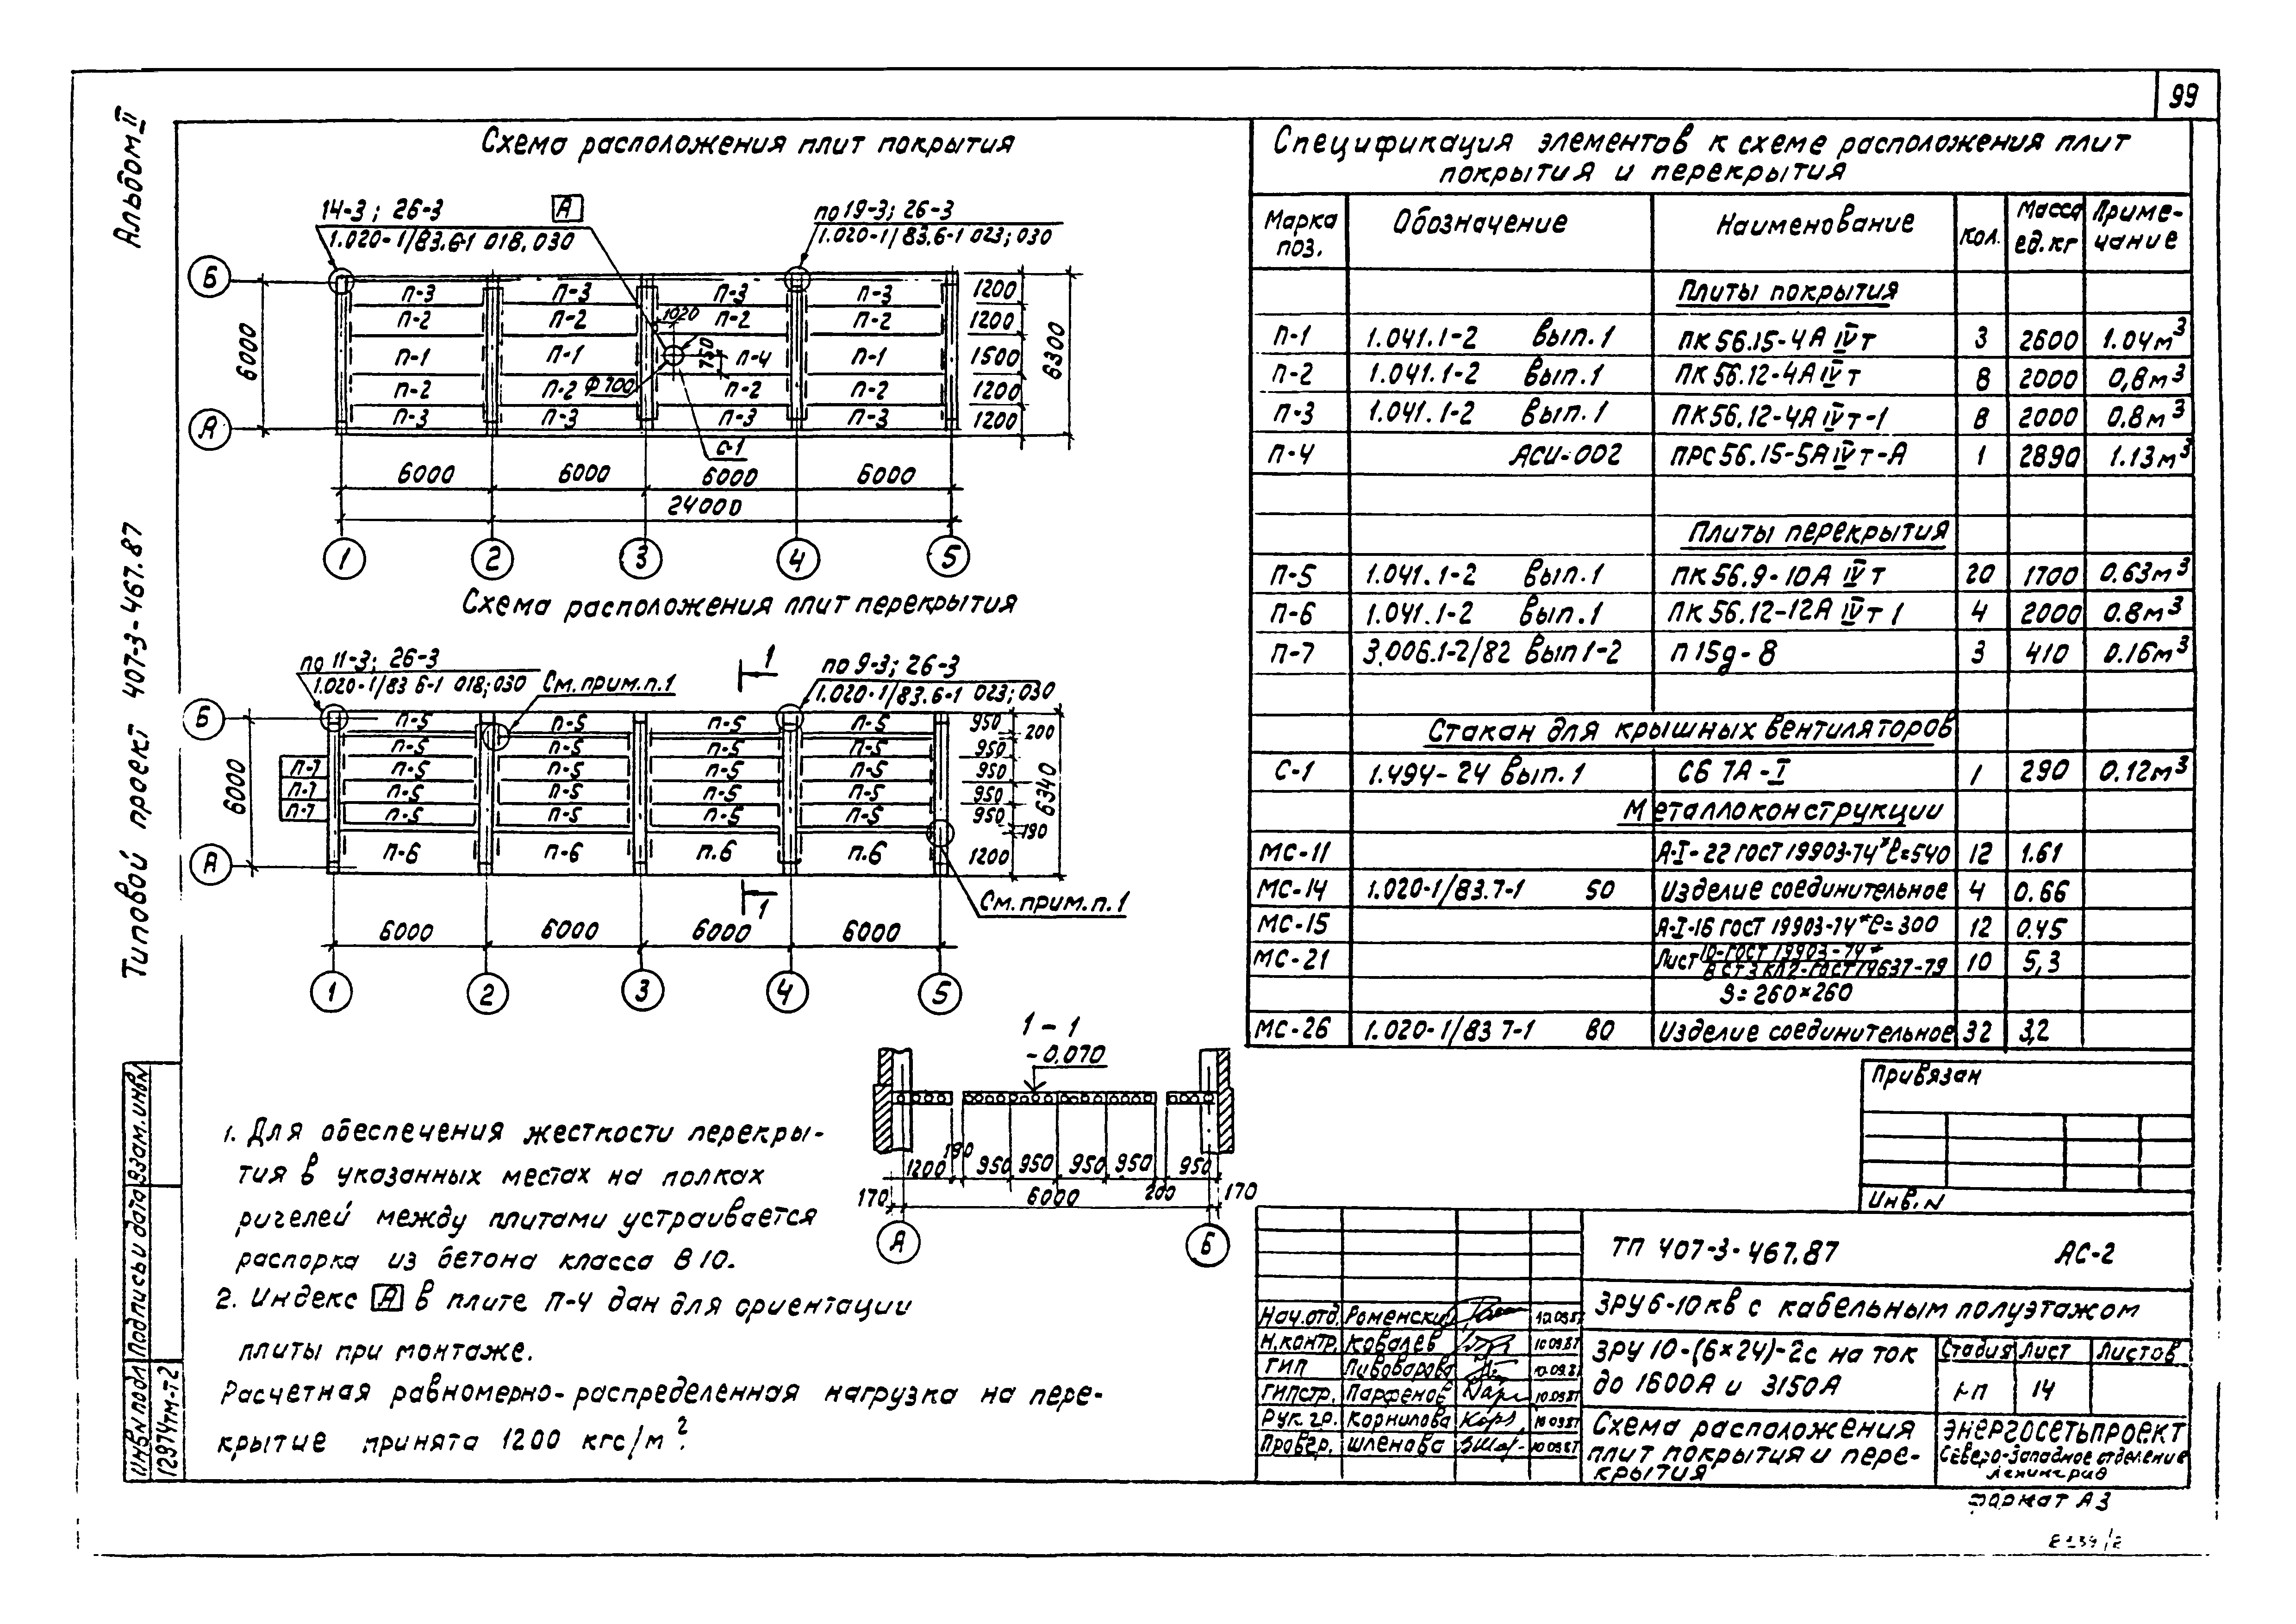 99
Альбом II
Типовой проект 407-3-467.87
Схема расположения плит покрытия
14-3; 26-3
1.020-1/83.6-1 018, 030
А
по 19-3; 26-3
1.020-1/83.6-1 023; 030
Б
А
6000
П-3 П-3 П-3 П-3
П-2 П-2 П-2 П-2
П-1 П-1 П-4 П-1
П-2 П-2 П-2 П-2
П-3 П-3 П-3 П-3
1020
750
Ф700
С-1
1200
1200
1500
1200
1200
6300
6000 6000 6000 6000
24000
1 2 3 4 5
Схема расположения плит перекрытия
по 11-3; 26-3
1.020-1/83 6-1 018; 030
См. прим. п. 1
1
по 9-3; 26-3
1.020-1/83.6-1 023; 030
Б
А
6000
П-5 П-5 П-5 П-5
П-5 П-5 П-5 П-5
П-5 П-5 П-5 П-5
П-5 П-5 П-5 П-5
П-5 П-5 П-5 П-5
П-6 П-6 П.6 П.6
П-7
П-7
П-7
950
200
950
950
950
950
190
1200
6340
1
См. прим. п. 1
6000 6000 6000 6000
1 2 3 4 5
1 - 1
-0.070
1200 190 950 950 950 950 200 950
170 6000 170
А Б
1. Для обеспечения жесткости перекры-
тия в указанных местах на полках
ригелей между плитами устраивается
распорка из бетона класса В 10.
2. Индекс А в плите П-4 дан для ориентации
плиты при монтаже.
Расчетная равномерно-распределенная нагрузка на пере-
крытие принята 1200 кгс/м².
Спецификация элементов к схеме расположения плит
покрытия и перекрытия
Марка поз. Обозначение Наименование Кол. Масса ед. кг Приме-чание
Плиты покрытия
П-1 1.041.1-2 вып. 1 ПК 56.15-4А IVт 3 2600 1.04м³
П-2 1.041.1-2 вып. 1 ПК 56.12-4А IVт 8 2000 0,8м³
П-3 1.041.1-2 вып. 1 ПК 56.12-4А IVт-1 8 2000 0.8м³
П-4 АСИ-002 ПРС 56.15-5А IVт-А 1 2890 1.13м³
Плиты перекрытия
П-5 1.041.1-2 вып. 1 ПК 56.9-10А IVт 20 1700 0.63м³
П-6 1.041.1-2 вып. 1 ПК 56.12-12А IVт 1 4 2000 0.8м³
П-7 3.006.1-2/82 вып 1-2 П 15д-8 3 410 0.16м³
Стакан для крышных вентиляторов
С-1 1.494-24 вып. 1 СБ 7А-I 1 290 0.12м³
Металлоконструкции
МС-11 А-I-22 ГОСТ 19903-74* ℓ=540 12 1.61
МС-14 1.020-1/83.7-1 50 Изделие соединительное 4 0.66
МС-15 А-I-16 ГОСТ 19903-74* ℓ=300 12 0.45
МС-21 Лист 10-ГОСТ 19903-74* 10 5,3
В СТ3 КП2-ГОСТ 14637-79
S=260×260
МС-26 1.020-1/83 7-1 80 Изделие соединительное 32 3,2
Привязан
Инв. N
ТП 407-3-467.87 АС-2
ЗРУ 6-10 кВ с кабельным полуэтажом
ЗРУ 10-(6×24)-2с на ток
до 1600А и 3150А
Стадия Лист Листов
РП 14
Схема расположения
плит покрытия и пере-
крытия
Энергосетьпроект
Северо-Западное отделение
Ленинград
Нач. отд. Роменский 10.09.87
Н. контр. Ковалев 10.09.87
ГИП Пивоварова 10.09.87
ГИП стр. Парфенов 10.09.87
Рук. гр. Корнилова 10.09.87
Провер. Шленова 10.09.87
формат А3
Взам. инв. N
Подпись и дата
Инв. N подл
12974тм-т2